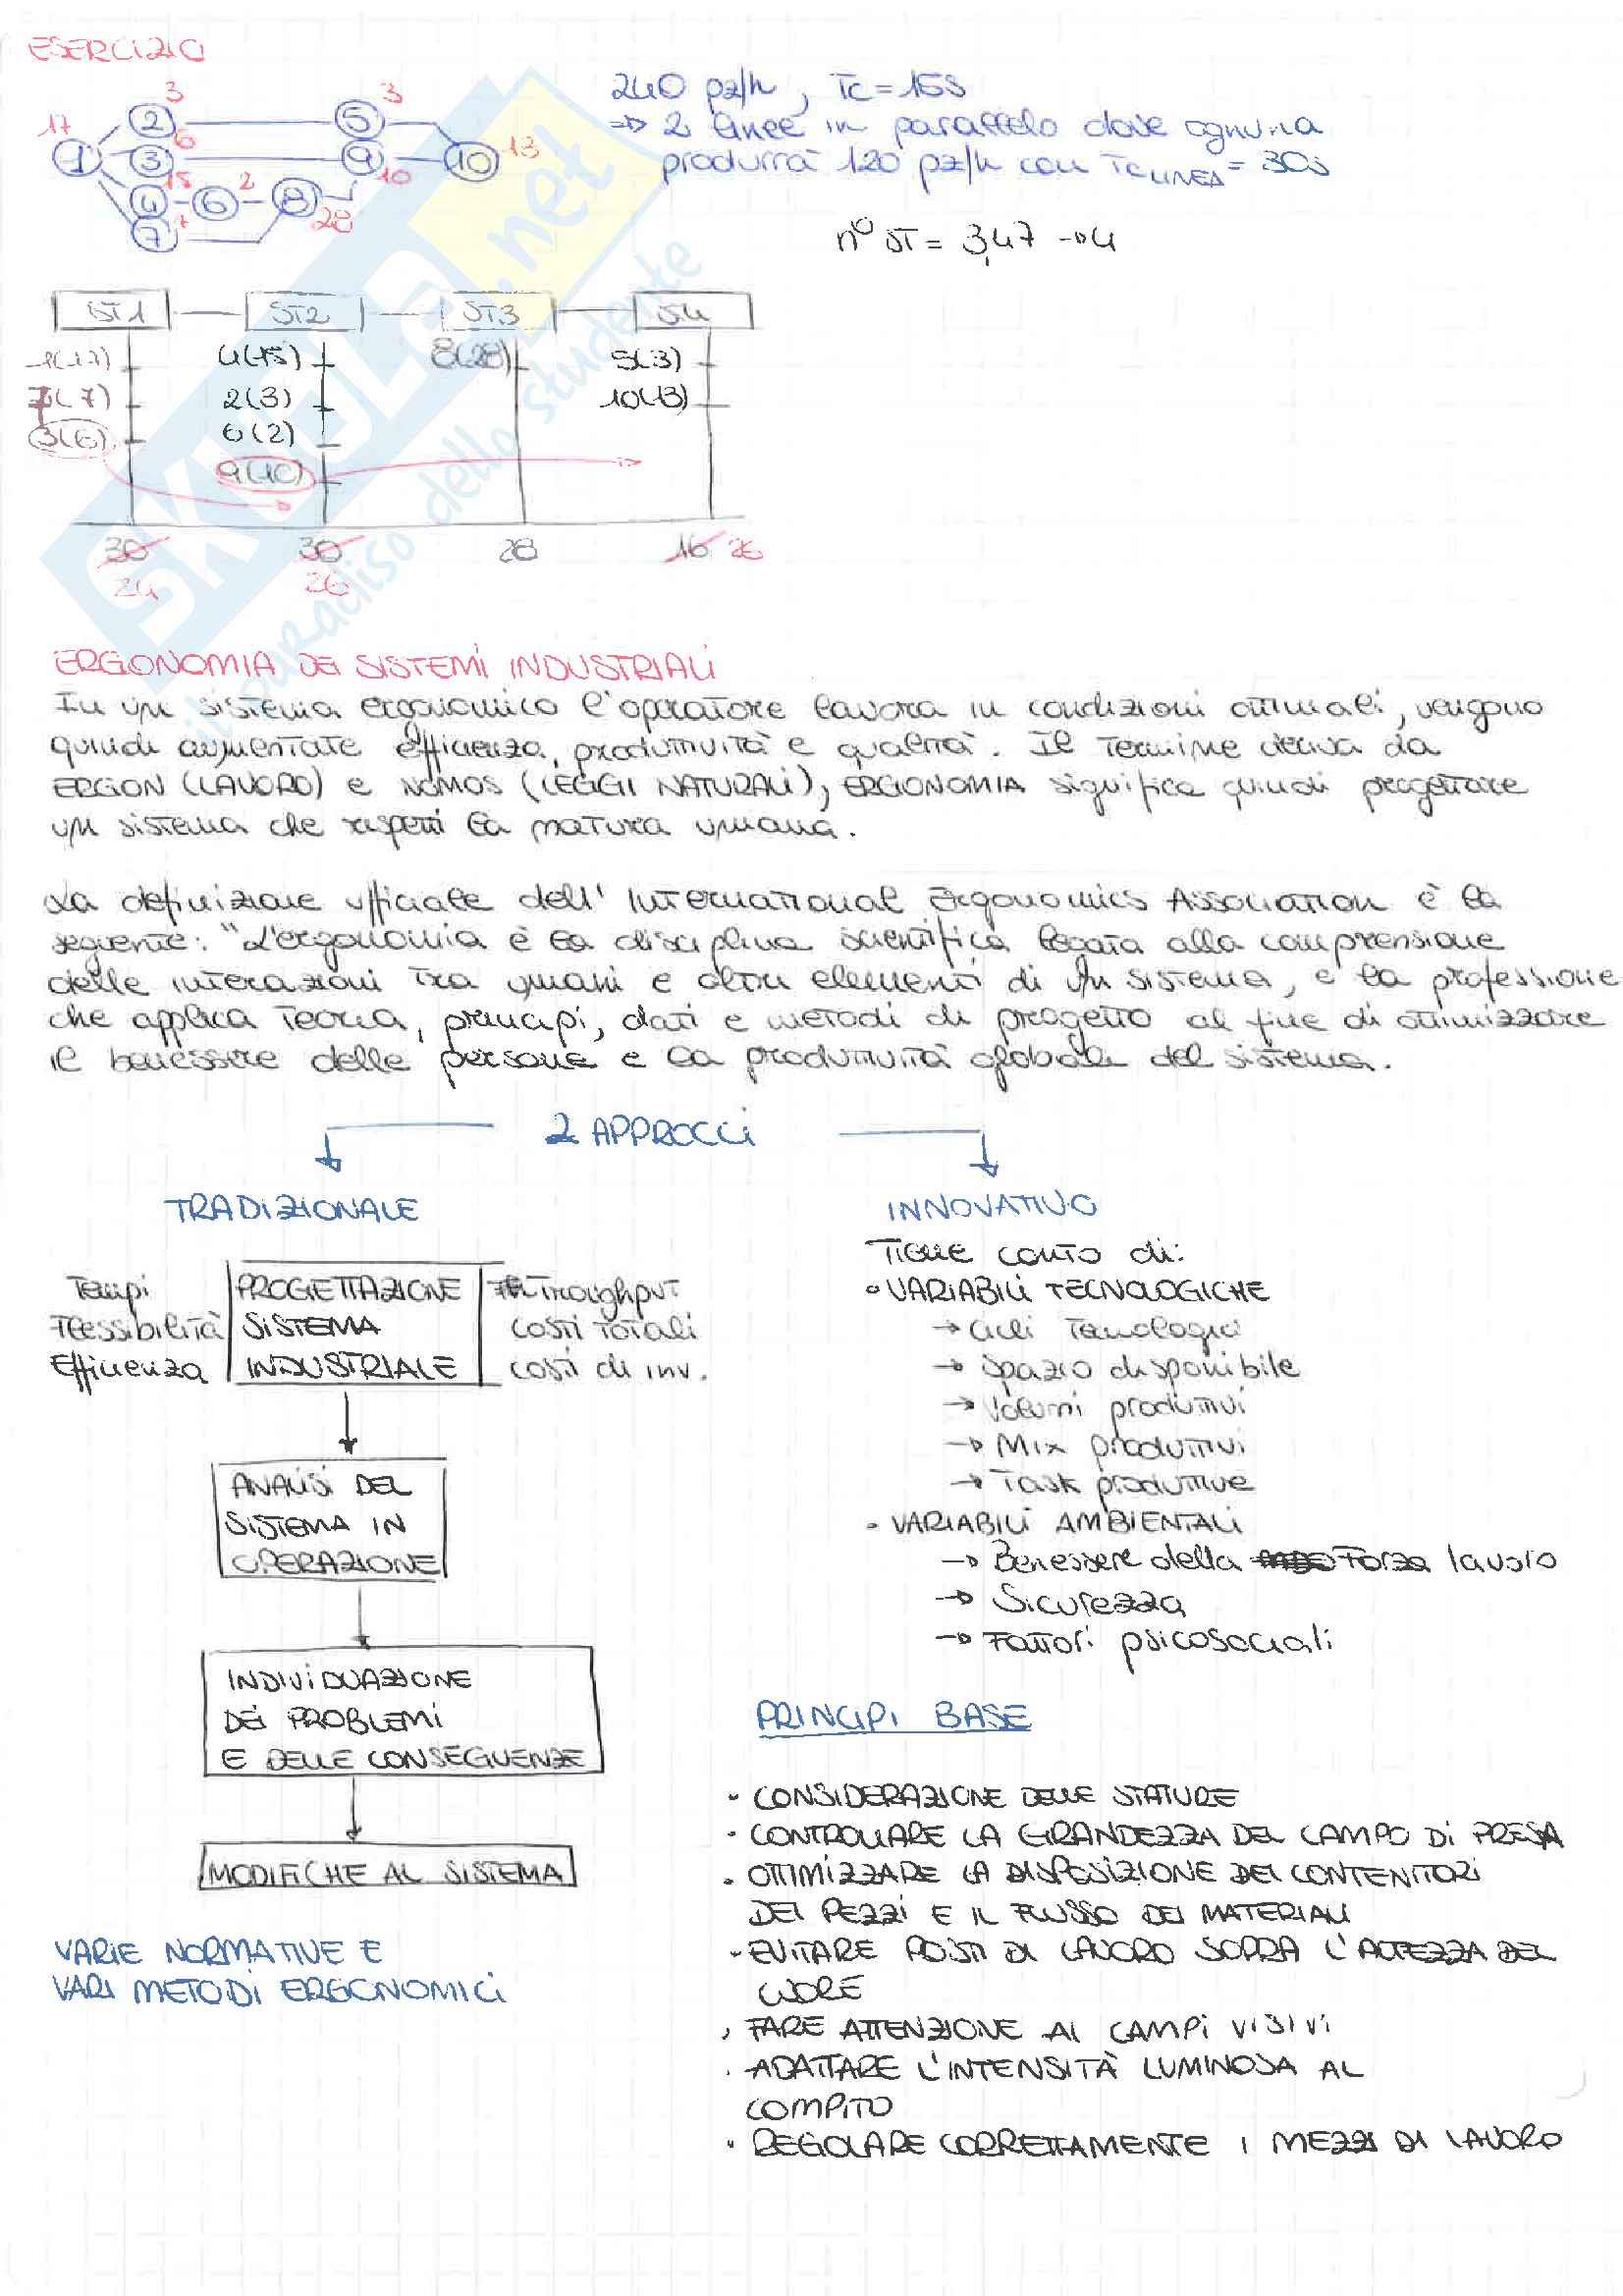 ESERCIZIO
3 3
17 2 5
6
1 3 9 10 13
15 2 10
4 6 8
7 7 28
240 pz/h, Tc=15s
=> 2 linee in parallelo dove ognuna
produrrà 120 pz/h con Tc LINEA = 30s
n° ST = 3,47 → 4
ST1 ST2 ST3 ST4
1(17) 4(15) 8(28) 5(3)
7(7) 2(3) 10(13)
3(6) 6(2)
9(10)
30 30 28 16 26
24 26
SKUOLA.net
il paradiso dello studente
ERGONOMIA DEI SISTEMI INDUSTRIALI
In un sistema ergonomico l'operatore lavora in condizioni ottimali, vengono
quindi aumentate efficienza, produttività e qualità. Il termine deriva da
ERGON (LAVORO) e NOMOS (LEGGI NATURALI), ERGONOMIA significa quindi progettare
un sistema che rispetti la natura umana.
La definizione ufficiale dell'International Ergonomics Association è la
seguente: "L'ergonomia è la disciplina scientifica legata alla comprensione
delle interazioni tra umani e altri elementi di un sistema, e la professione
che applica teoria, principi, dati e metodi di progetto al fine di ottimizzare
il benessere delle persone e la produttività globale del sistema.
2 APPROCCI
TRADIZIONALE
Tempi PROGETTAZIONE Troughput
Flessibilità SISTEMA costi totali
Efficienza INDUSTRIALE costi di inv.
ANALISI DEL
SISTEMA IN
OPERAZIONE
INDIVIDUAZIONE
DEI PROBLEMI
E DELLE CONSEGUENZE
MODIFICHE AL SISTEMA
VARIE NORMATIVE E
VARI METODI ERGONOMICI
INNOVATIVO
Tiene conto di:
• VARIABILI TECNOLOGICHE
→ Cicli Tecnologici
→ Spazio disponibile
→ Volumi produttivi
→ Mix produttivi
→ Task produttive
• VARIABILI AMBIENTALI
→ Benessere della Forza lavoro
→ Sicurezza
→ Fattori psicosociali
PRINCIPI BASE
• CONSIDERAZIONE DELLE STATURE
• CONTROLLARE LA GRANDEZZA DEL CAMPO DI PRESA
• OTTIMIZZARE LA DISPOSIZIONE DEI CONTENITORI
DEI PEZZI E IL FLUSSO DEI MATERIALI
• EVITARE POSTI DI LAVORO SOPRA L'ALTEZZA DEL
CUORE
• FARE ATTENZIONE AI CAMPI VISIVI
• ADATTARE L'INTENSITÀ LUMINOSA AL
COMPITO
• REGOLARE CORRETTAMENTE I MEZZI DI LAVORO